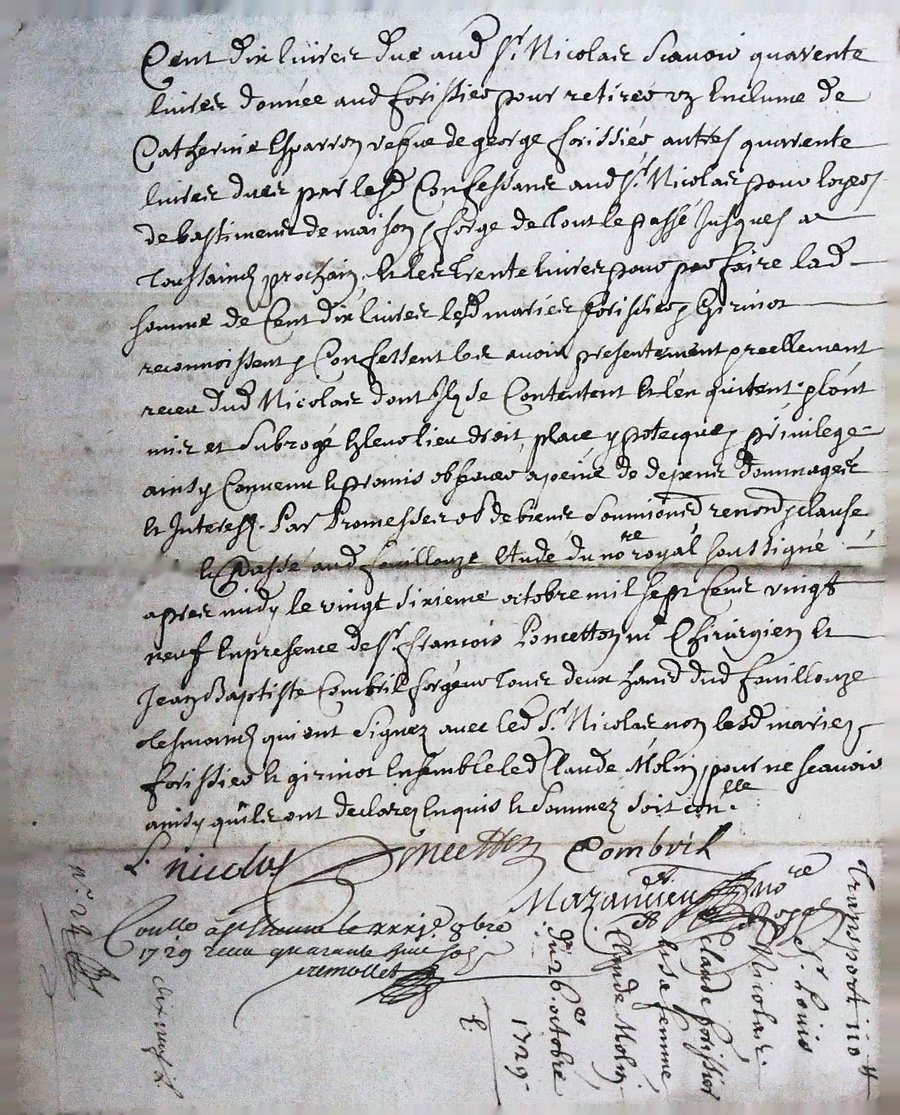 Cent dix livres due aud Sr. Nicolas scavoir quarente
livres donnée aud forissier pour retirer vz Enclume de
Catherine Esparron vefve de george forissier autres quarente
livres dues par lesd Confessans aud Sr. Nicolas pour loyer
de bastiment de maison & forge de tout le passé Jusques a
Toussainct prochain, et les trente livres pour parfaire lad
somme de Cent dix livres lesd mariés forissier & girinot
reconnoissent & Confessent les avoir presentement & reellement
receu dud Nicolas dont ilz se Contentent et len quitent & l'ont
mis et subrogé En leur lieu droit, place ypotecque & privilege
ainsy Convenu et promis observer a peine de depens dommages
et Interests. Par Promesses ob de biens soumions renons & clause
et Passé aud fouillouze Etude du nore royal soussigné
apres midy le vingt sixieme octobre mil sept Cens vingt
neuf En presence de Sr. francois Poncetton me Chirurgien et
Jean Baptiste Combril forgeur tous deux habd dud fouillouze
tesmoins qui ont signez avec led Sr. Nicolas non lesd mariez
forissier et girinot Ensemble led Claude Molin, pour ne scavoir
ainsy qu'ils ont declarez Enquis et sommez soit conlle
L. nicolas Poncetton Combril
Mazandieu nore
Royal
Conllé a St Etienne le xxxje 8bre
1729 receu quarante huit sols
remollet
n.° 24
dix neuf s.
Transport 110 ₶
Sr. Louis
Nicolas.
Claude forissier
et sa femme
et
Claude Molin
du 26. octobre
1729